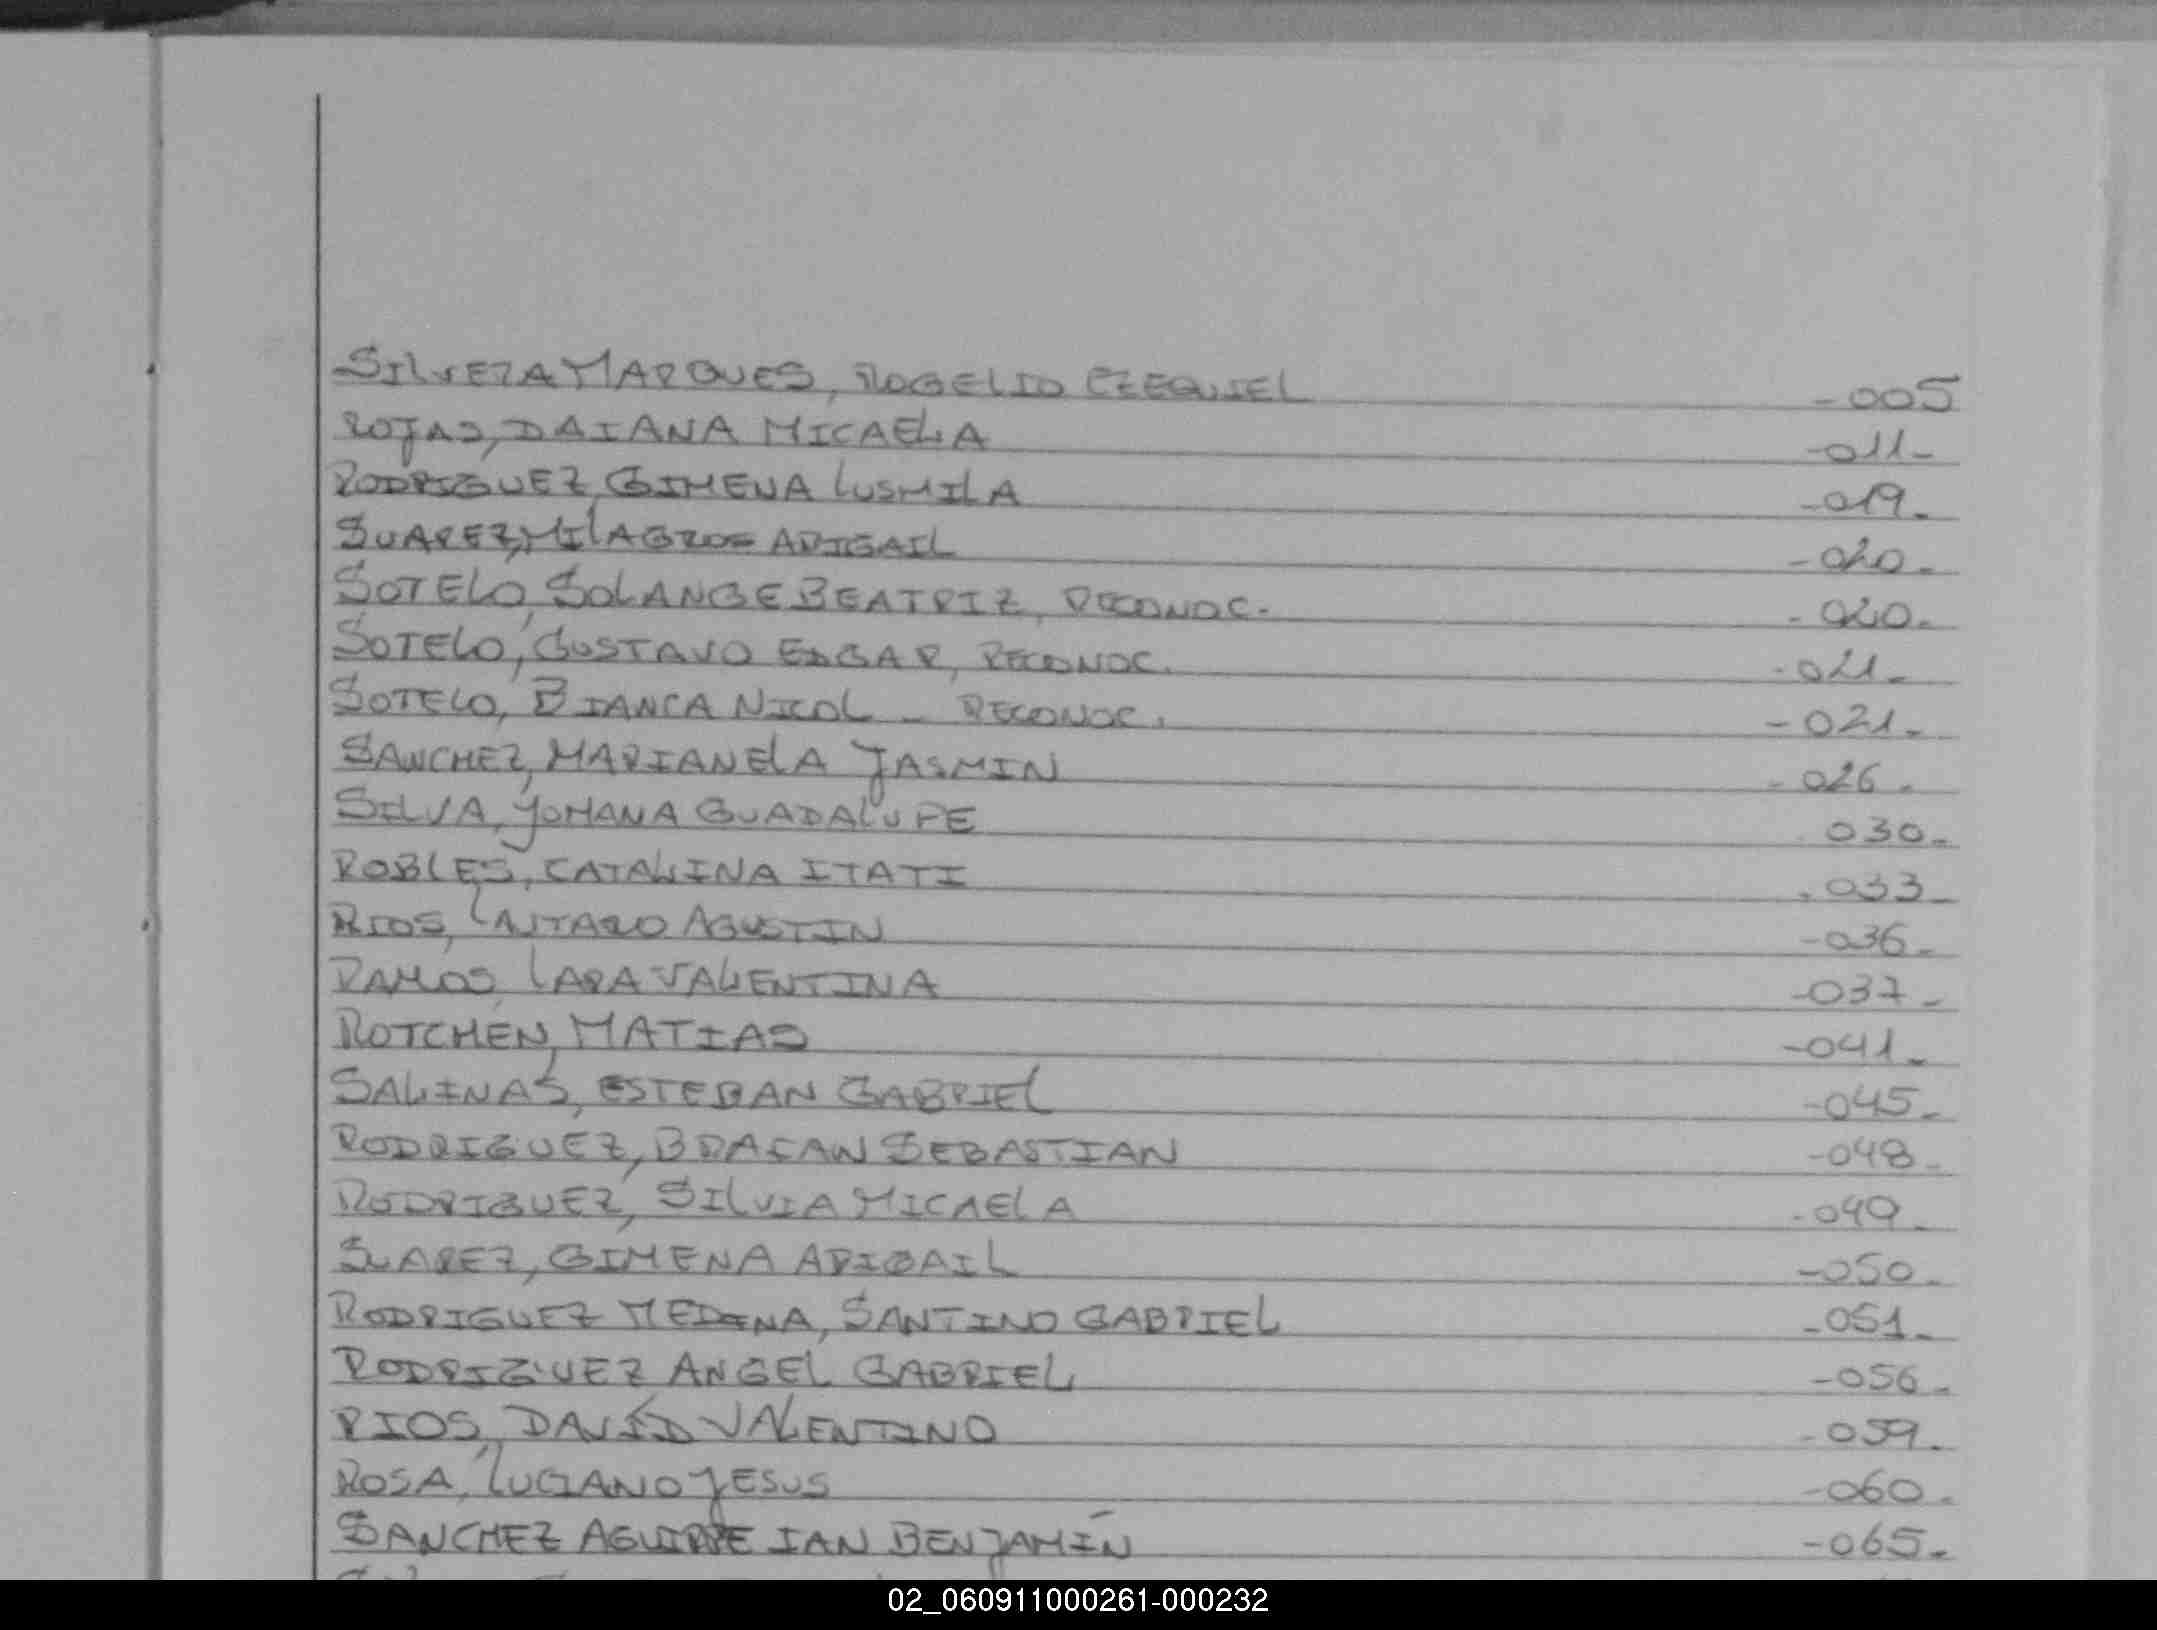 SILVERA MARQUES, ROGELIO EZEQUIEL -005
ROJAS, DAIANA MICAELA -011-
RODRIGUEZ, GIMENA LUSMILA -019-
SUAREZ, MILAGROS ABIGAIL -020-
SOTELO, SOLANGE BEATRIZ, RECONOC. - 020-
SOTELO, GUSTAVO EDGAR, RECONOC. -021-
SOTELO, BIANCA NICOL - RECONOC. -021-
SANCHEZ, MARIANELA JASMIN -026-
SILVA, YOHANA GUADALUPE 030-
ROBLES, CATALINA ITATI -033-
RIOS, LAUTARO AGUSTIN -036-
RAMOS, LARA VALENTINA -037-
ROTCHEN, MATIAS -041-
SALINAS, ESTEBAN GABRIEL -045-
RODRIGUEZ, BRAIAN SEBASTIAN -048-
RODRIGUEZ, SILVIA MICAELA -049-
SUAREZ, GIMENA ABIGAIL -050-
RODRIGUEZ MEDINA, SANTINO GABRIEL -051-
RODRIGUEZ ANGEL GABRIEL -056-
RIOS, DAVID VALENTINO -059-
ROSA, LUCIANO JESUS -060-
SANCHEZ AGUIRRE IAN BENJAMÍN -065-
02_060911000261-000232